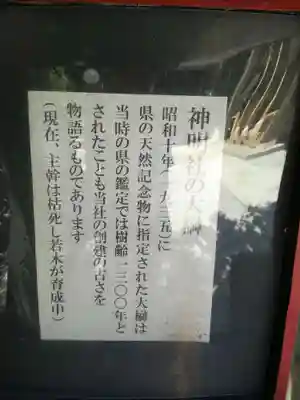 神明社の大榊
昭和十年(一九三五)に
県の天然記念物に指定された大榊は
当時の県の鑑定では樹齢一二〇〇年と
されたことも当社の創建の古さを
物語るものであります
(現在、主幹は枯死し若木が育成中)